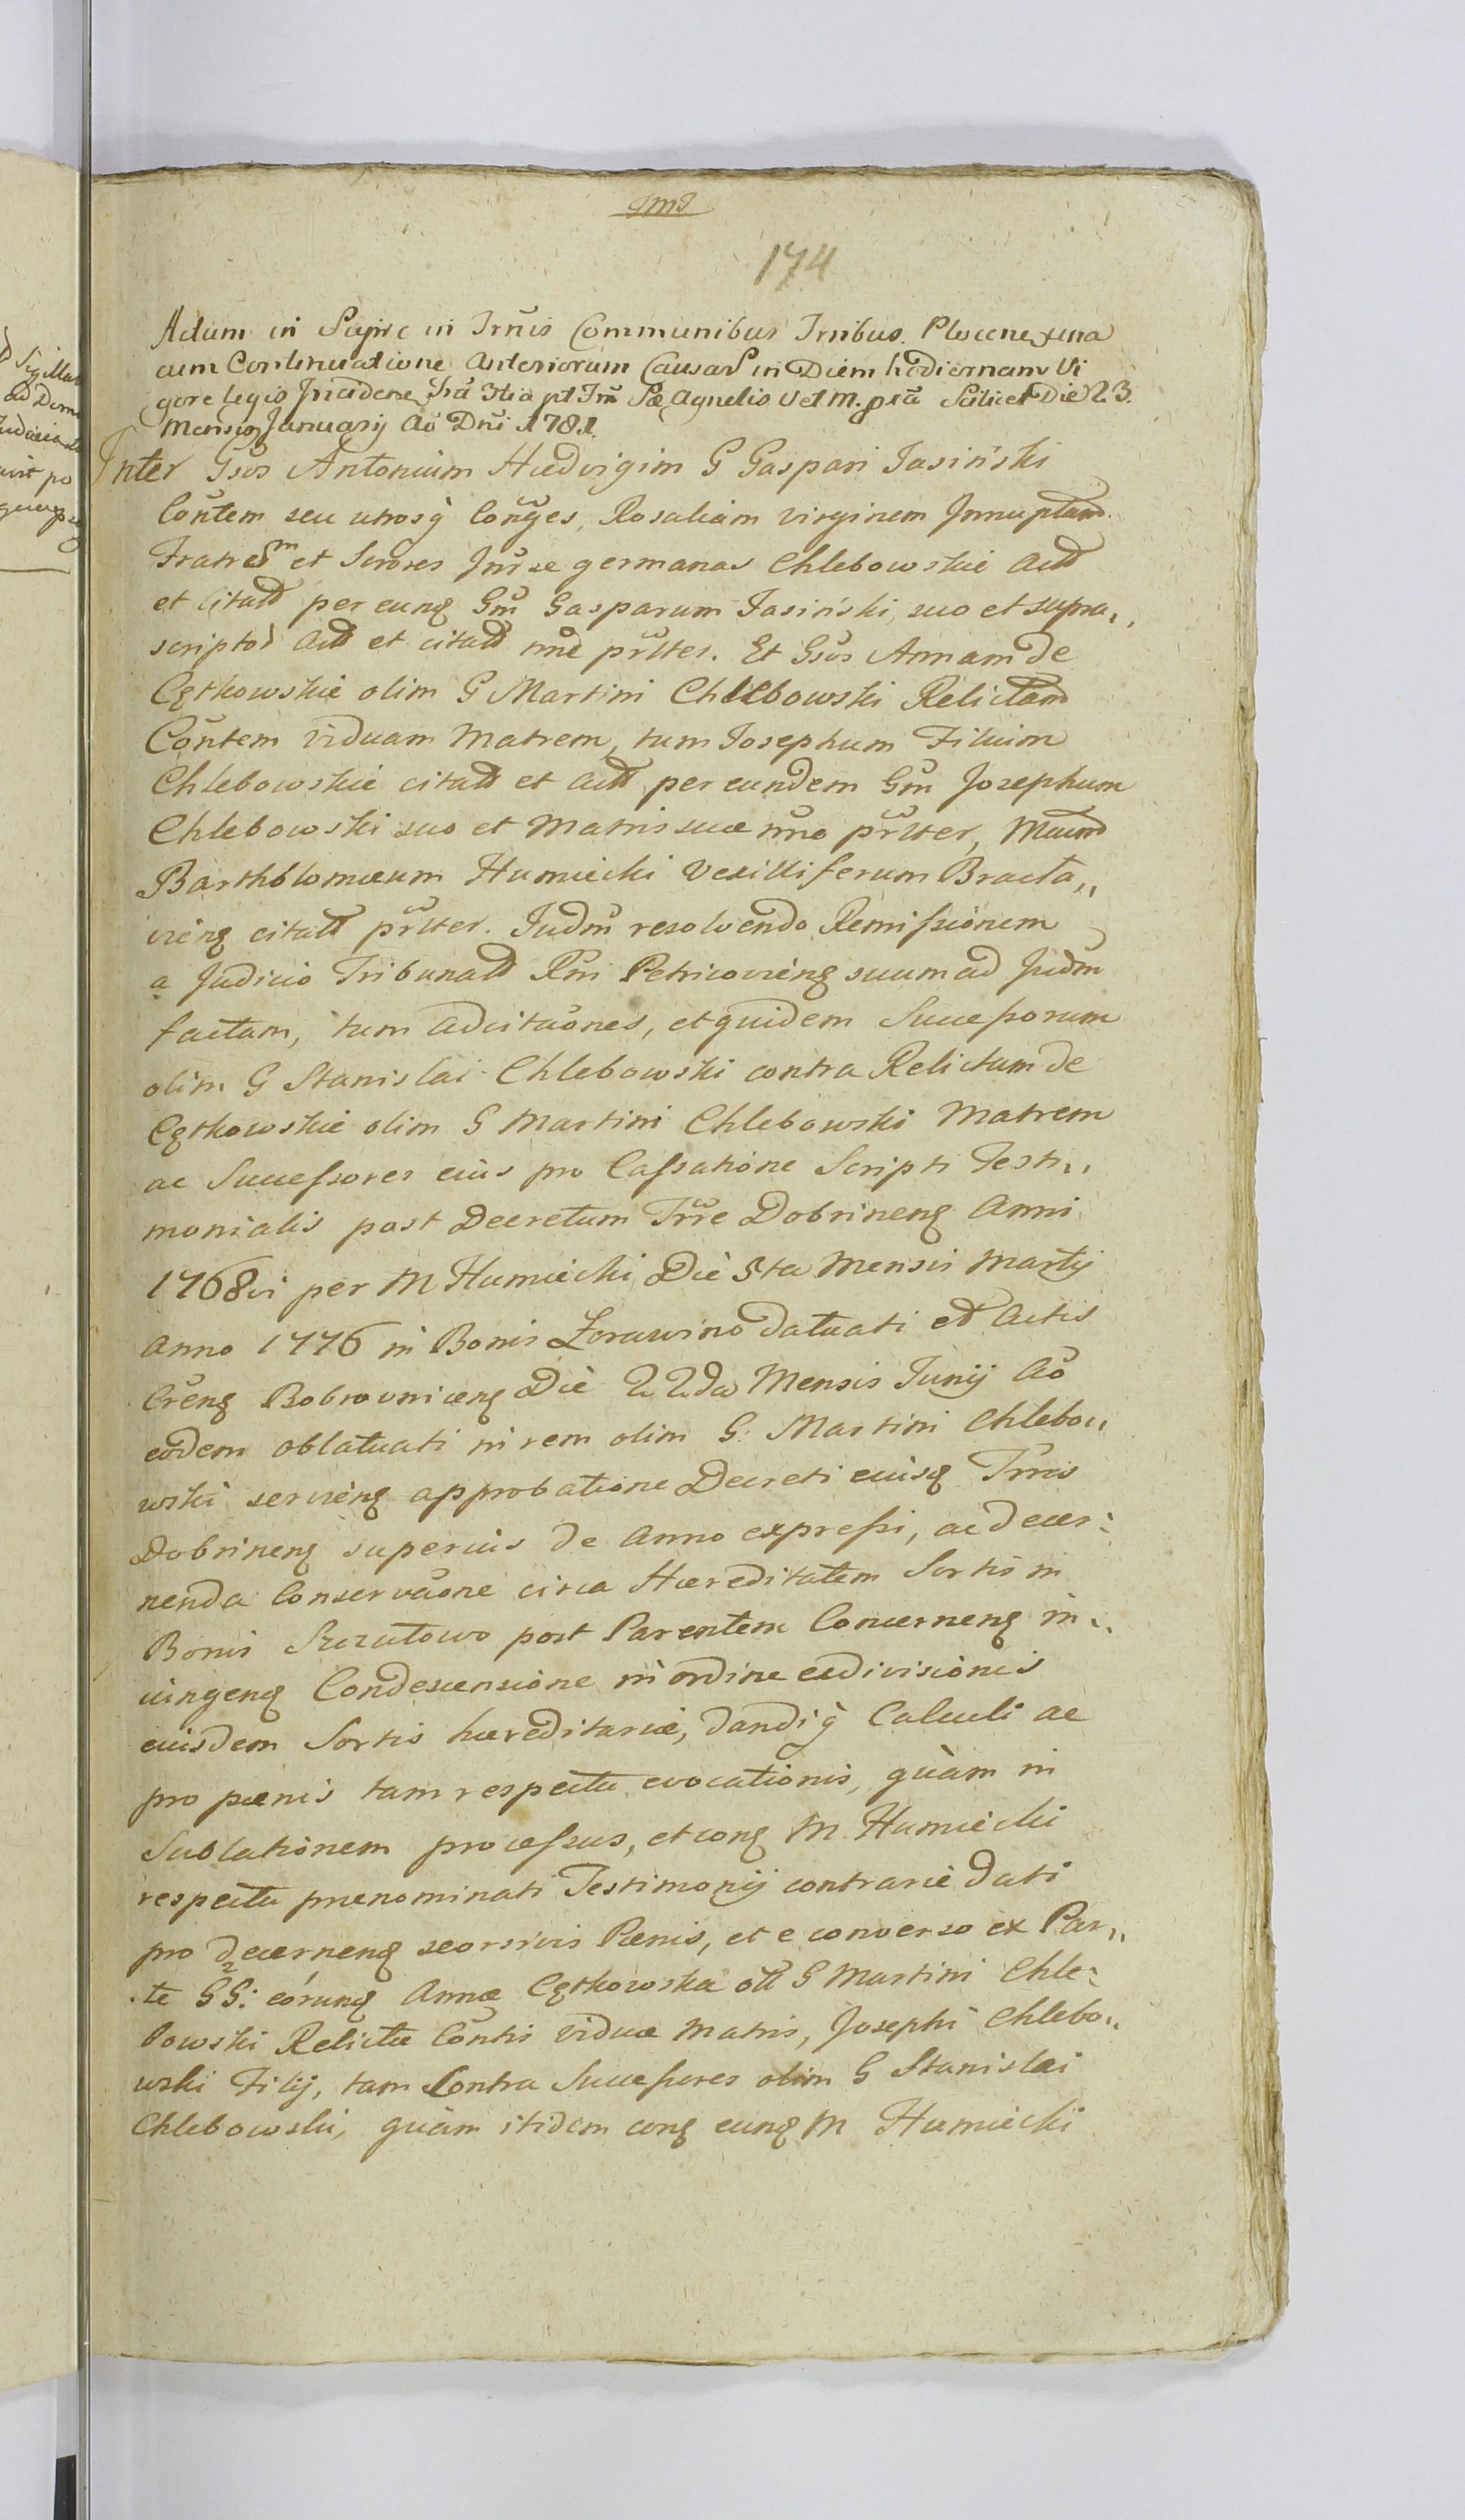 JmJ
174
Actum in Sierpc in Trnis Communibus Trribus. Plocenꝫ una
cum Continuatione Anteriorum Causar in Diem hodiernam Vi
gore legis Jncidenꝫ fra 3tia pt Jm Sæ Agnelis V et M. pia Scilicet Die 23.
Mensis January Ao Dni 1781.
Inter Gsos Antonium Hedvigim G Gaspari Jasiński
Contem seu utrosq Conges, Rosaliam virginem Jnnuptam
Fratrem et Sorores Jnrse germanas Chlebowskie Actt
et Citatt per eunꝫ Gm Gasparum Jasiński, suo et supra,,
scriptor Actt et citatt nne prlter. Et Gsos Annam de
Cętkowskie olim G Martini Chlebowski Relictam
Contem viduam Matrem, tum Josephum Filium
Chlebowskie citatt et Actt per eundem Gm Josephum
Chlebowski suo et Matris suæ nno prlter, Mcum
Bartholomæum Humiecki Vexilliferum Bracla,,
vienꝫ citatt prlter. Judm resolvendo Remissionem
a Judicio Tribunatt Rni Petricovienꝫ suum ad Judm
factam, tum Adcitaones, et quidem Successorum
olim G Stanislai Chlebowski contra Relictam de
Cętkowskie olim G Martini Chlebowski Matrem
ac Successores eius pro Cassatione Scripti Testi,,
monialis post Decretum Trre Dobrinenꝫ Anni
1768vi per M Humiecki Die 5ta Mensis Martij
Anno 1776 in Bonis Zorawino datuati et Actis
Crenꝫ Bobrovnicenꝫ Die 22da Mensis Junij Ao
eodem oblatuati in rem olim G. Martini Chlebo,,
wski servienꝫ approbatione Decreti eiusꝫ Trris
Dobrinenꝫ superius de Anno expressi, ac decer:
nenda Conservaone circa Hæreditatem Sortis in
Bonis Szczutowo post Parentem Concernenꝫ in,,
vingenꝫ Condescensione in ordine exdivisionis
eiusdem Sortis hæreditariæ, dandiq Calculi ac
pro pænis tam respectu evocationis, quàm in
Sublationem processus, et conꝫ M Humiecki
respectu prænominati Testimonij contrarie dati
pro decernenꝫ seorsivis Pænis, et e converso ex Par,,
te GG: eorunꝫ Annæ Cętkowska ott G Martini Chle:
bowski Relictæ Contis viduæ Matris, Josephi Chlebo,,
wski Filij, tam Contra Successores olim G Stanislai
Chlebowski, quàm itidem conꝫ eunꝫ M Humiecki